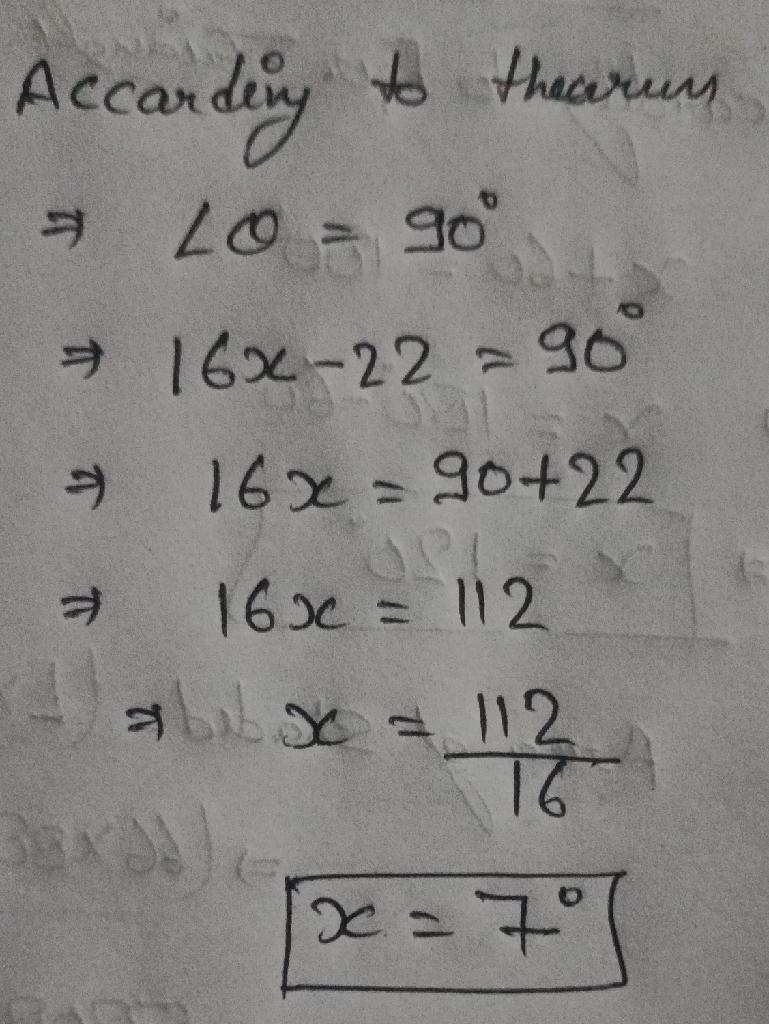 Accarding to thearum
⇒ ∠O = 90°
⇒ 16x-22 = 90°
⇒ 16x = 90+22
⇒ 16x = 112
⇒ x = 112/16
x = 7°